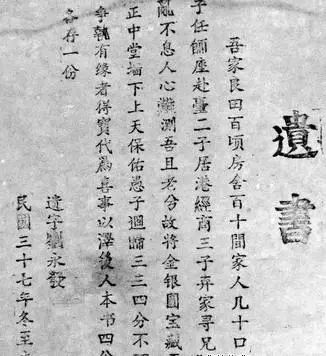 遺書
吾家良田百頃房舍百十間家人几十口
子任師座赴臺二子居港經商三子弃家尋兄
亂不息人心難測吾且老兮故將金銀圓宝藏
正中堂墙下上天保佑愚子迴歸三三四分不
争執有缘者得寳代為喜事以澤後人本书四分
各存一份
遺字劉永發
民國三十七年冬至